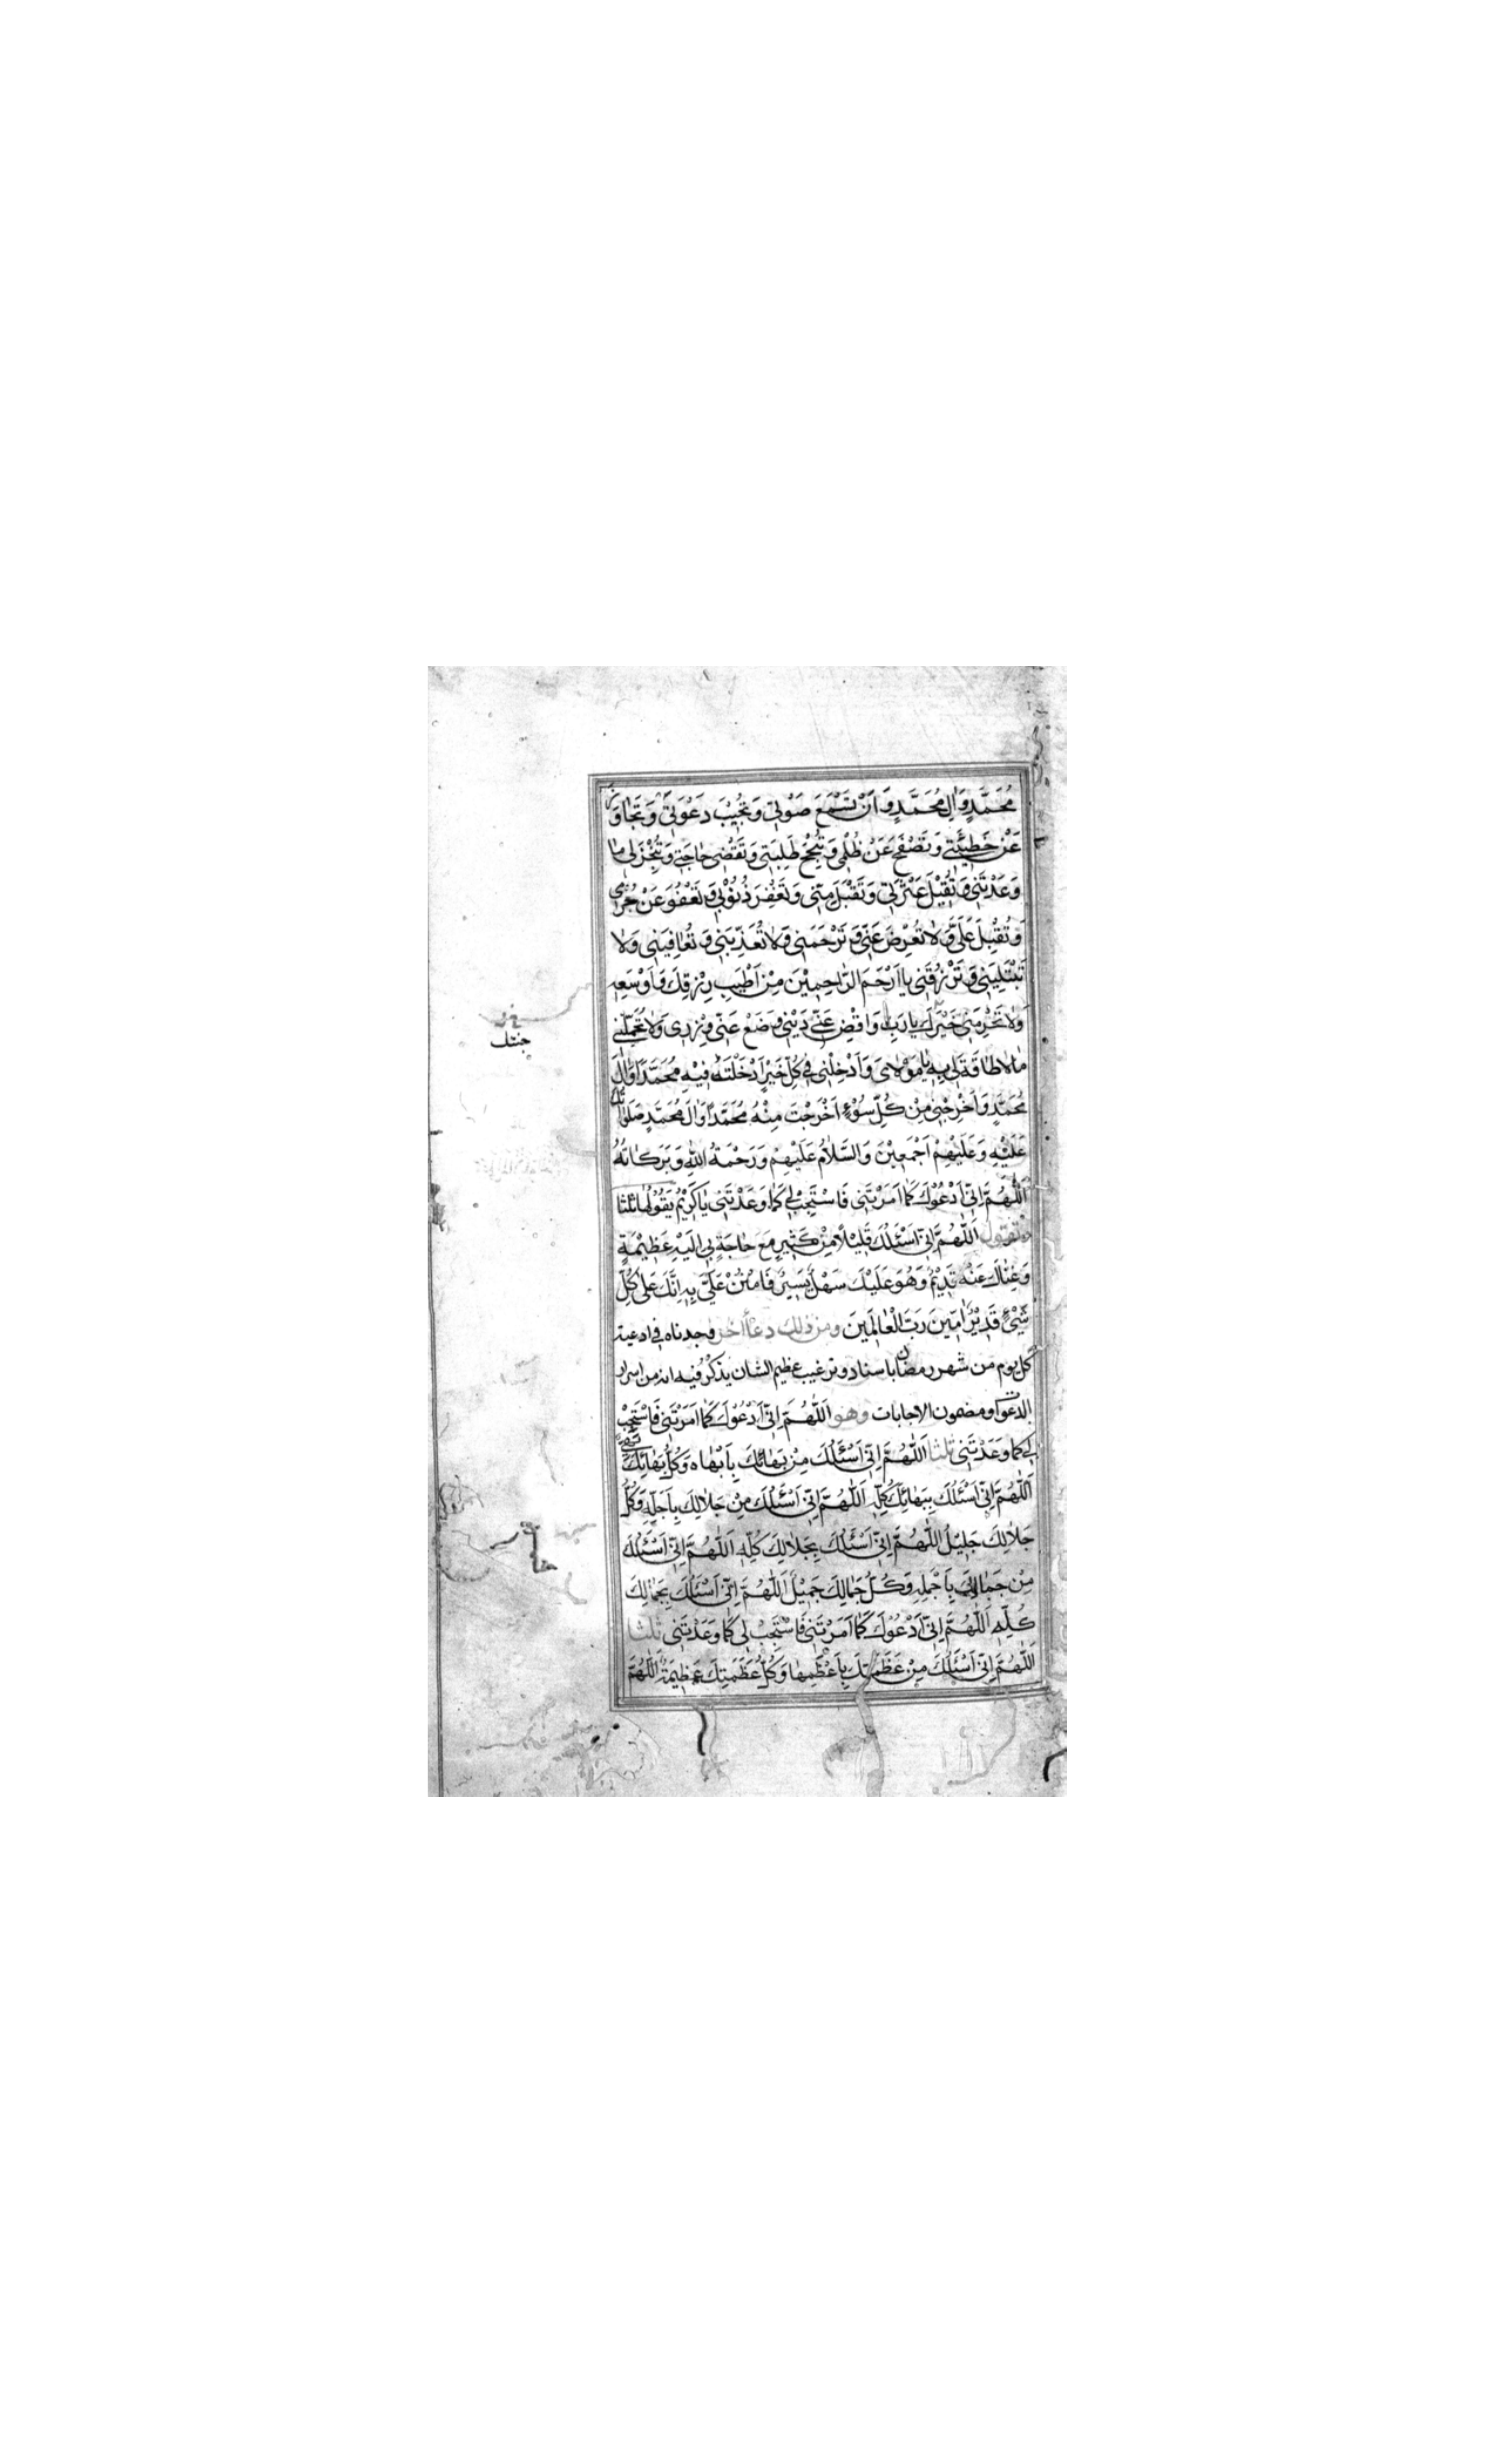 مُحَمَّدٍ وَالِ مُحَمَّدٍ وَ اَنْ تَسْمَعَ صَوْتِي وَ تُجِيْبَ دَعْوَتِي وَ تَجَاوَزَ
عَنْ خَطِيْئَتِي وَ تَصْفَحَ عَنْ ظُلْمِي وَ تُنْجِحَ طَلِبَتِي وَ تَقْضِيَ حَاجَتِي وَ تُنْجِزَ لِي مَا
وَعَدْتَنِي وَ تُقِيْلَ عَثْرَتِي وَ تَقْبَلَ مِنِّي وَ تَغْفِرَ ذُنُوْبِي وَ تَعْفُوَ عَنْ جُرْمِي
وَ تُقْبِلَ عَلَيَّ وَ لَا تُعْرِضَ عَنِّي وَ تَرْحَمَنِي وَ لَا تُعَذِّبَنِي وَ تُعَافِيَنِي وَ لَا
تَبْتَلِيَنِي وَ تَرْزُقَنِي يَا اَرْحَمَ الرَّاحِمِيْنَ مِنْ اَطْيَبِ رِزْقِكَ وَ اَوْسَعِهِ
وَ لَا تَحْرِمَنِي خَيْرَكَ يَا رَبِّ وَ اقْضِ عَنِّي دَيْنِي وَ ضَعْ عَنِّي وِزْرِي وَ لَا تُحَمِّلْنِي
مَا لَا طَاقَةَ لِي بِهِ يَا مَوْلَايَ وَ اَدْخِلْنِي فِي كُلِّ خَيْرٍ اَدْخَلْتَ فِيْهِ مُحَمَّدًا وَ الَ
مُحَمَّدٍ وَ اَخْرِجْنِي مِنْ كُلِّ سُوْءٍ اَخْرَجْتَ مِنْهُ مُحَمَّدًا وَ الَ مُحَمَّدٍ صَلَوَاتُكَ
عَلَيْهِ وَ عَلَيْهِمْ اَجْمَعِيْنَ وَ السَّلَامُ عَلَيْهِمْ وَ رَحْمَةُ اللهِ وَ بَرَكَاتُهُ
اَللّٰهُمَّ اِنِّي اَدْعُوْكَ كَمَا اَمَرْتَنِي فَاسْتَجِبْ لِي كَمَا وَعَدْتَنِي يَا كَرِيْمُ يَقُوْلُهَا ثَلٰثًا
ثم تقول اَللّٰهُمَّ اِنِّي اَسْئَلُكَ قَلِيْلًا مِنْ كَثِيْرٍ مَعَ حَاجَةٍ بِي اِلَيْهِ عَظِيْمَةٍ
وَ غِنَاكَ عَنْهُ قَدِيْمٌ وَ هُوَ عَلَيْكَ سَهْلٌ يَسِيْرٌ فَامْنُنْ عَلَيَّ بِهِ اِنَّكَ عَلٰى كُلِّ
شَيْءٍ قَدِيْرٌ اٰمِيْنَ رَبَّ الْعَالَمِيْنَ ومن ذلك دعاء اخر وجدناه في ادعية
كل يوم من شهر رمضان باسناد و ترغيب عظيم الشان يذكر فيه انه من اسرار
الدعوات و مضمون الاجابات وهو اَللّٰهُمَّ اِنِّي اَدْعُوْكَ كَمَا اَمَرْتَنِي فَاسْتَجِبْ
لِي كَمَا وَعَدْتَنِي ثلثا اَللّٰهُمَّ اِنِّي اَسْئَلُكَ مِنْ بَهَائِكَ بِاَبْهَاهُ وَ كُلُّ بَهَائِكَ بَهِيٌّ
اَللّٰهُمَّ اِنِّي اَسْئَلُكَ بِبَهَائِكَ كُلِّهِ اَللّٰهُمَّ اِنِّي اَسْئَلُكَ مِنْ جَلَالِكَ بِاَجَلِّهِ وَ كُلُّ
جَلَالِكَ جَلِيْلٌ اَللّٰهُمَّ اِنِّي اَسْئَلُكَ بِجَلَالِكَ كُلِّهِ اَللّٰهُمَّ اِنِّي اَسْئَلُكَ
مِنْ جَمَالِكَ بِاَجْمَلِهِ وَ كُلُّ جَمَالِكَ جَمِيْلٌ اَللّٰهُمَّ اِنِّي اَسْئَلُكَ بِجَمَالِكَ
كُلِّهِ اَللّٰهُمَّ اِنِّي اَدْعُوْكَ كَمَا اَمَرْتَنِي فَاسْتَجِبْ لِي كَمَا وَعَدْتَنِي ثلثا
اَللّٰهُمَّ اِنِّي اَسْئَلُكَ مِنْ عَظَمَتِكَ بِاَعْظَمِهَا وَ كُلُّ عَظَمَتِكَ عَظِيْمَةٌ اَللّٰهُمَّ
جنتك